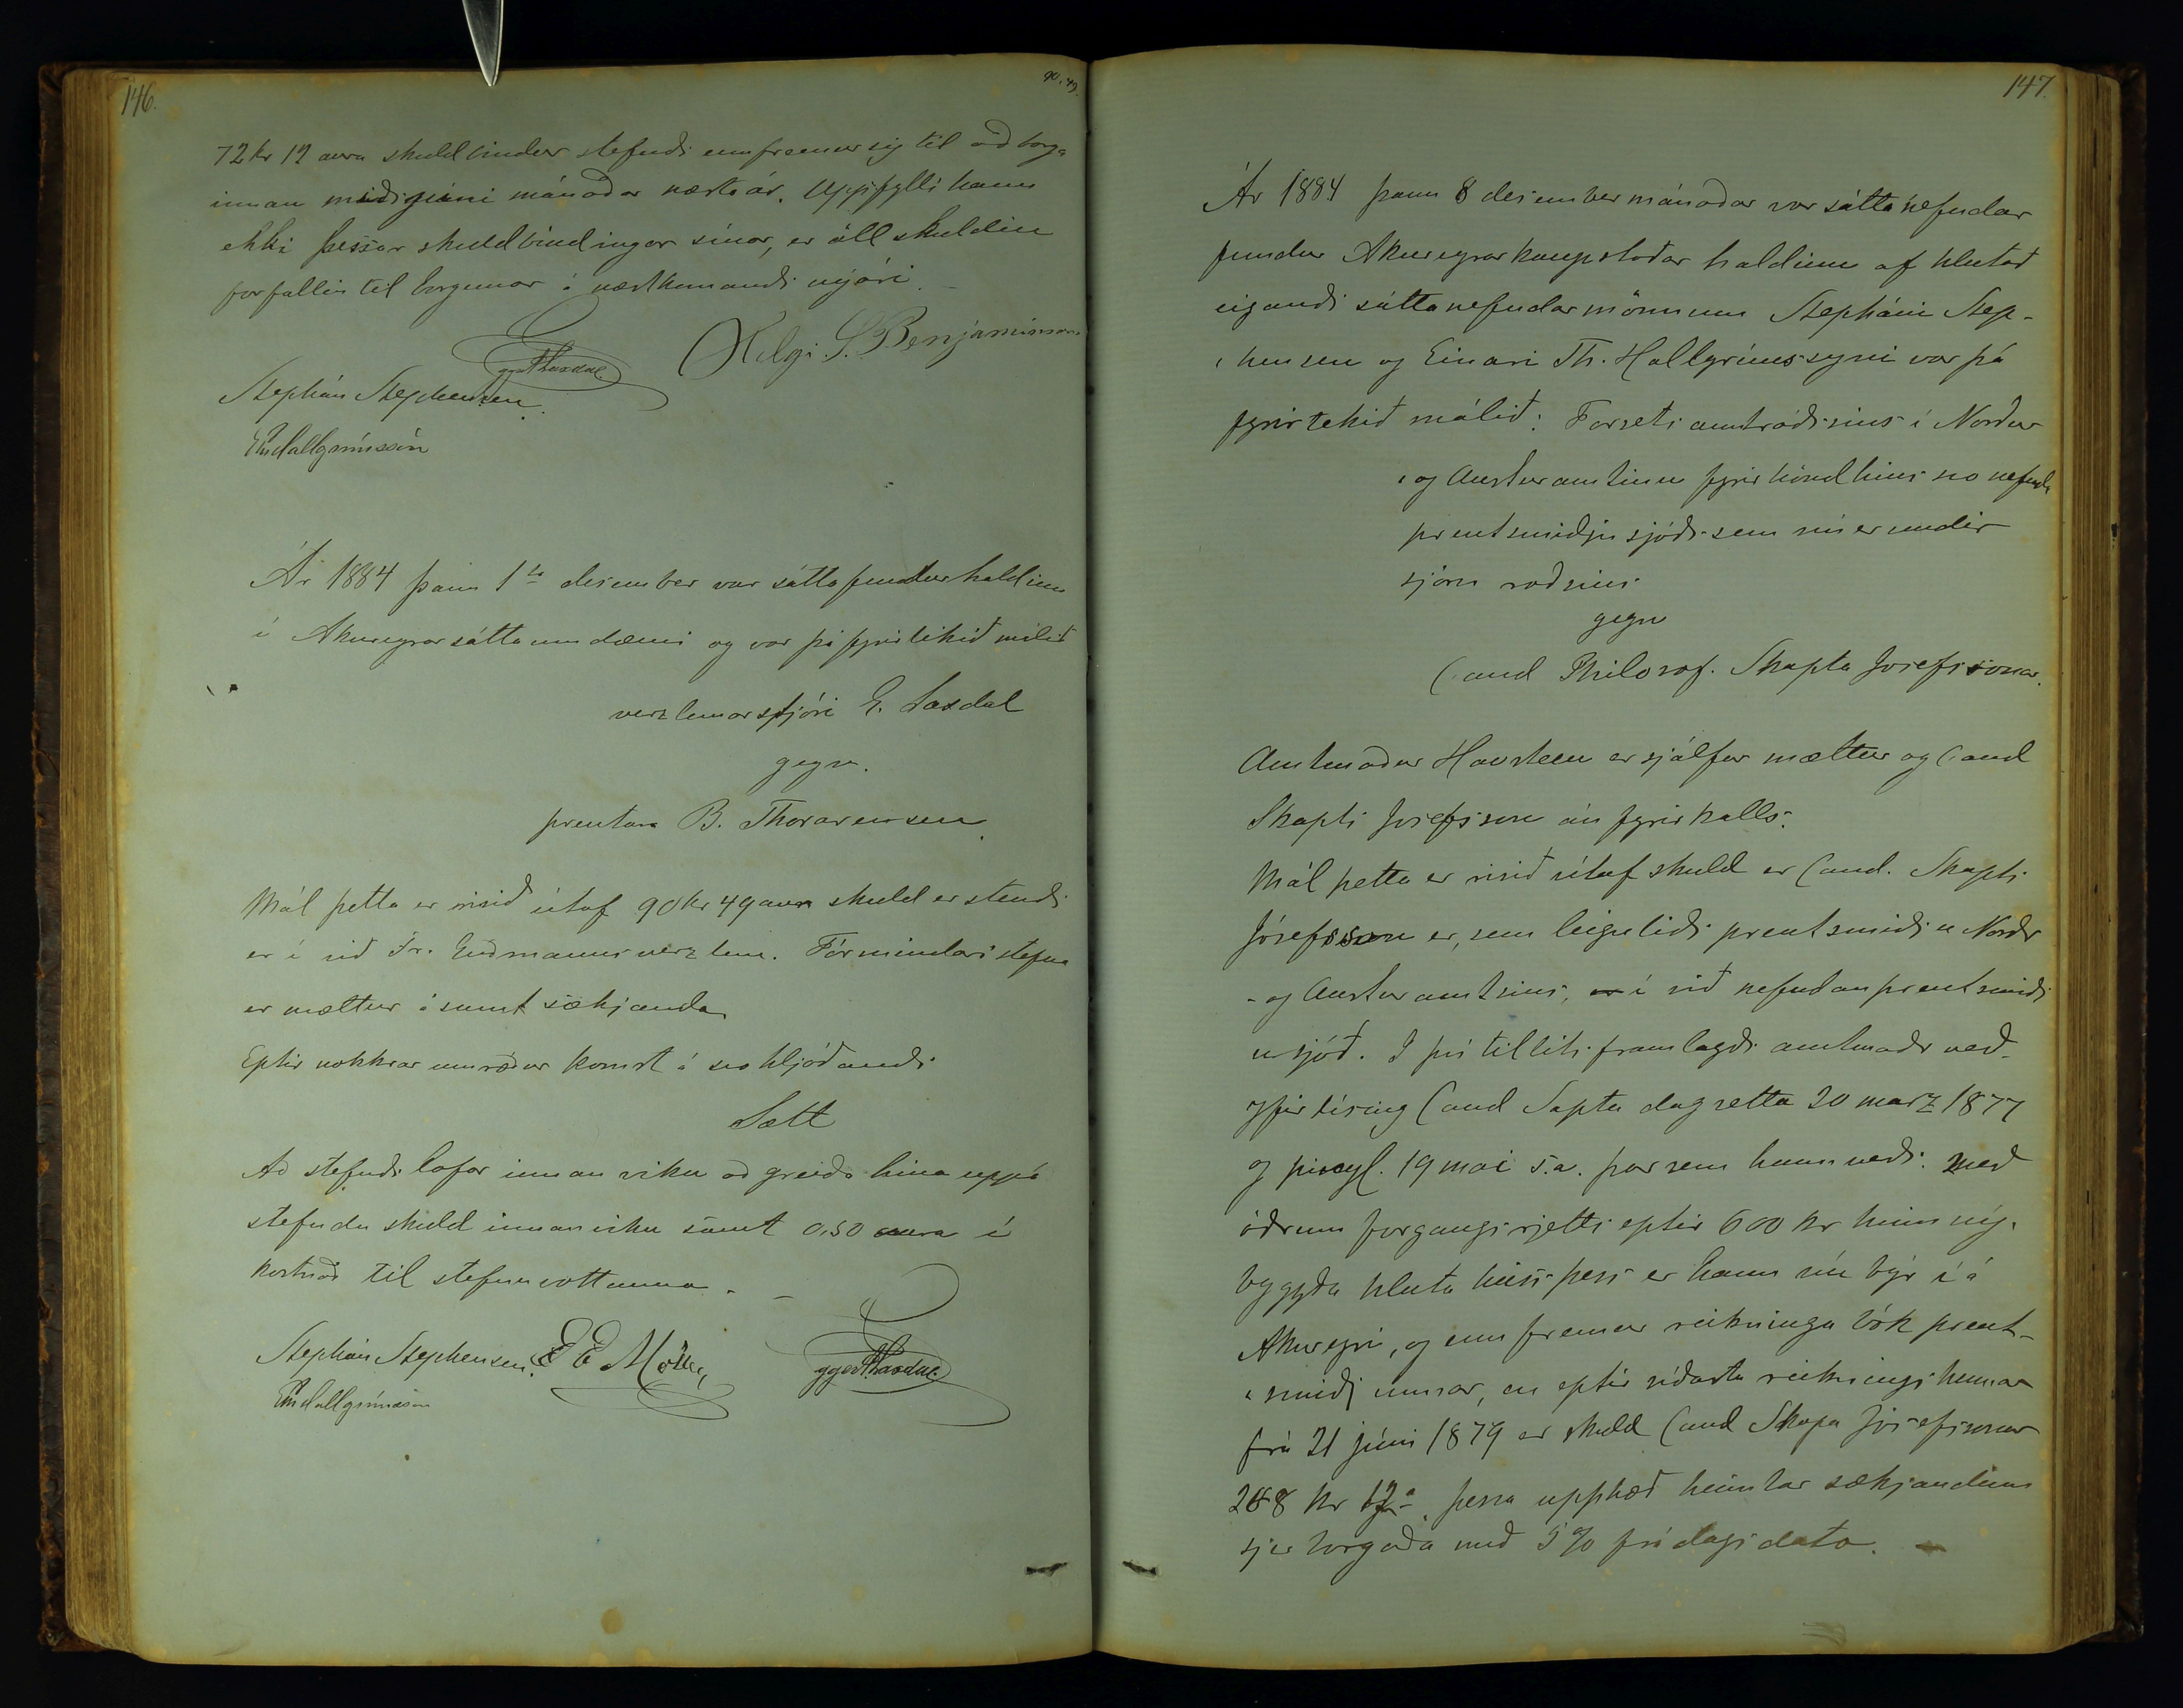 146.
90.49.
72 kr 12 aura skuldbindur stefndi ennfremur sig til að borga
innan miðs júni mánaðar næsta ár. Uppfylli hann
ekki þessar skuldbindingar sínar, er öll skuldin
forfallin til borgunar á næstkomandi nýári. –
Helgi S. Benjaminsson
Eggert Laxdal.
Stephán Stephensen.
EThHallgrímsson
Ár 1884 þann 1ta desember var sáttafundur haldinn
í Akureyrarsáttaumdæmi og var þá fyrirtekið málið
verzlunarstjóri E. Laxdal
gegn.
prentara B. Thorarensen.
Mál þetta er risið útaf 90 kr 49 aura skuld er stendi
er í við Fr. Gudmanns verzlun. Formindari stefna
er mættur ásamt sækjanda
Eptir nokkrar umræður komst á svo hljóðandi
Sætt
Að stefndi lofar innan viku að greiða hina uppá
stefndu skuld innan viku samt 0,50 aura í
kostnað til stefnuvottanna. –
Stephán Stephensen. E E Möller,
Eggert Laxdal.
EThHallgrímsson
147.
Ár 1884 þann 8 desembermánaðar var sáttanefndar
fundur Akureyrarkaupstaðar haldinn af hlutað
eigandi sáttanefndarmönnum Stepháni Step-
hensen og Einari Th. Hallgrímssyni var þá
fyrirtekið málið: Forseti amtráðsins í Norður
og Austuramtinu fyrir hönd hins svo nefnda
prentsmiðju sjóðs sem nú er undir
stjórn raðsins
gegn
Cand Philosof. Skapta Josefssonar.
Amtmaður Havsteen er sjálfur mættur og Cand
Skapti Josefsson án fyrirkalls.
Mál þetta er risið útaf skuld er Cand. Skapti
Jósefsson er, sem leiguliði prentsmiðju Norðr
- og Austuramtsins, í við nefndan prentsmiðj
u sjóð. I því tilliti framlagði amtmaðr veð-
yfirlísing Cand Sapta dagsetta 20 marz 1877
og þinegl. 19 mai s.a. þar sem hann veðs. með
öðrum forgangsrjetti eptir 600 kr hinn ný-
byggða hluta húss þess er hann nú býr í á
Akureyri, og enn fremur reikninga bók prent-
smiðjunnar, en eptir síðasta reikningi hennar
frá 21 júni 1879 er skuld Cand Skapa Jósefssonar
288 kr 12a. þessa upphæð heimtar sækjandinn
sjer borgaða með 5% frá dags dato. –